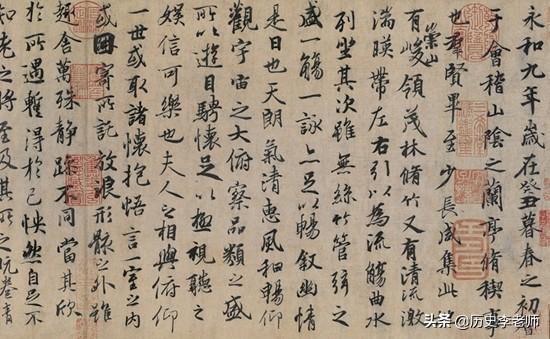 永和九年歲在癸丑暮春之初會
于會稽山陰之蘭亭脩稧事
也群賢畢至少長咸集此
有崇山峻領茂林脩竹又有清流激
湍暎帶左右引以為流觴曲水
列坐其次雖無絲竹管弦之
盛一觴一詠亦足以暢叙幽情
是日也天朗氣清惠風和暢仰
觀宇宙之大俯察品類之盛
所以遊目騁懷足以極視聽之
娛信可樂也夫人之相與俯仰
一世或取諸懷抱悟言一室之內
或因寄所託放浪形骸之外雖
趣舍萬殊靜躁不同當其欣
於所遇蹔得於己怏然自足不
知老之將至及其所之既惓情
头条 @历史李老师